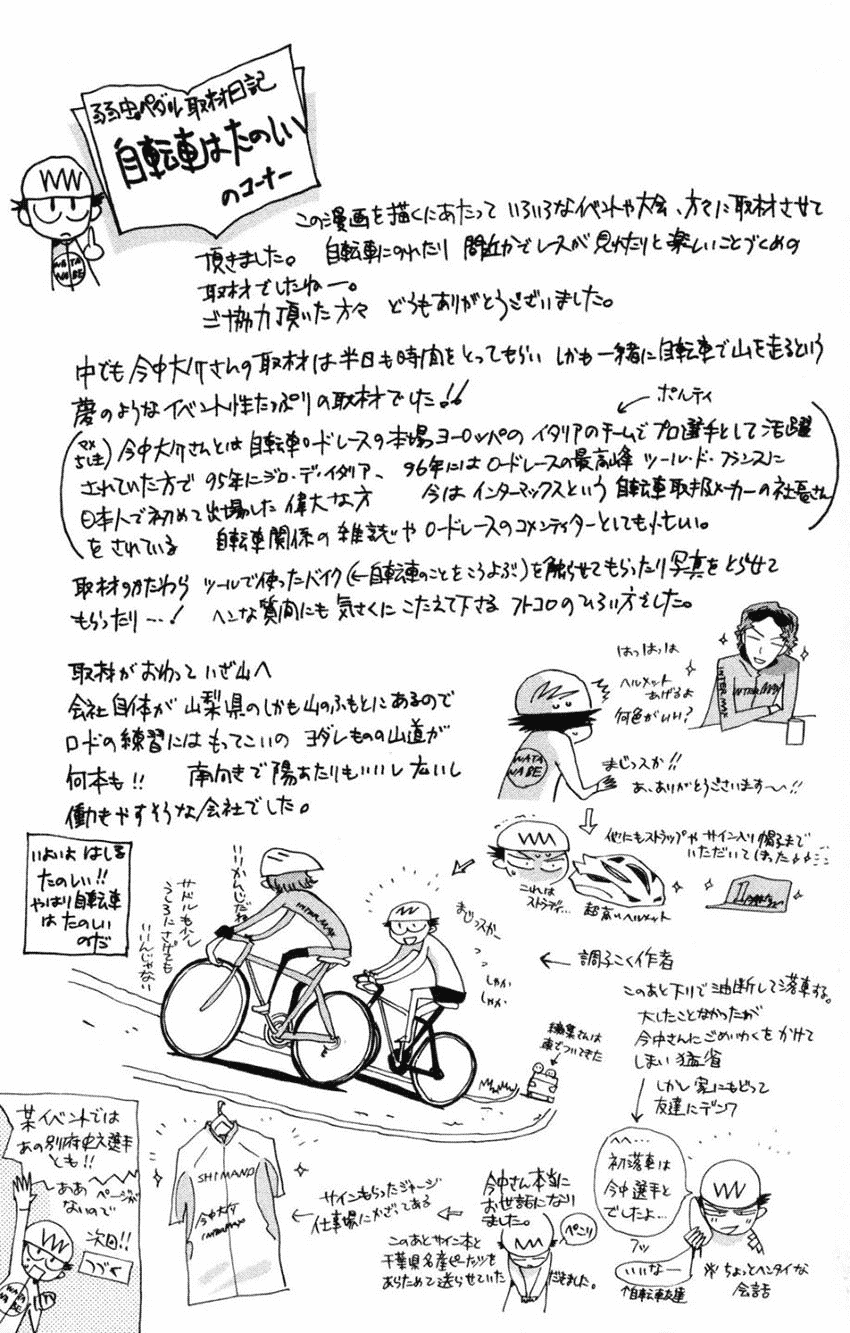 弱虫ペダル取材日記
自転車はたのしい
のコーナー
WATA
NABE
この漫画を描くにあたって いろいろなイベントや大会、方々に取材させて
頂きました。 自転車にのれたり 間近かでレースが見れたりと楽しいことづくめの
取材でしたねー。
ご協力頂いた方々 どうもありがとうございました。
中でも今中大介さんの取材は半日も時間をとってもらい しかも一緒に自転車で山を走るという
夢のようなイベント性たっぷりの取材でした!!
ポルティ
(マメちしき) 今中大介さんとは自転車ロードレースの本場ヨーロッパのイタリアのチームでプロ選手として活躍
されていた方で 95年にジロ・デ・イタリア、 96年にはロードレースの最高峰 ツール・ド・フランスに
日本人で初めて出場した偉大な方 今はインターマックスという自転車取扱メーカーの社長さん
をされている 自転車関係の雑誌やロードレースのコメンテイターとしても忙しい。
取材のかたわら ツールで使ったバイク(←自転車のことをこうよぶ)を触らせてもらったり写真をとらせて
もらったり…! ヘンな質問にも気さくにこたえて下さる フトコロのひろい方でした。
取材がおわっていざ山へ
会社自体が山梨県のしかも山のふもとにあるので
ロードの練習にはもってこいの ヨダレものの山道が
何本も!! 南向きで陽あたりもいいし広いし
働きやすそうな会社でした。
はっはっは
ヘルメット
あげるよ
何色がいい?
INTER MAX
INTER MAX
WATA
NABE
まじっスか!!
あ、ありがとうございます〜〜!!
他にもストラップやサイン入り帽子まで
いただいてしまった
これは
ストラディ…
超高いヘルメット
いよいよ はしる
たのしい!!
やはり自転車
はたのしい
のだ
いいかんじだね
サドルもう少し
うしろにさげても
いいんじゃない
INTERMAX
まじっスかー
しゃか
しゃか
← 調子こく作者
このあと下りで油断して落車する。
大したことなかったが
今中さんにごめいわくをかけて
しまい猛省
しかし家にもどって
友達にデンワ
編集さんは
車でついてきた
へへ…
初落車は
今中選手と
でしたよ…
フッ
いいなー
↑自転車友達
※ちょっとヘンタイな
会話
今中さん本当に
お世話になり
ました。
ぺこり
このあとサイン本と
千葉県名産ピーナッツを
あらためて送らせていただきました。
サインもらったジャージ
仕事場にかざってある
SHIMANO
今中大介
INTERMAX
某イベントでは
あの別府史之選手
とも!!
ああ ページが
ないので
次回!!
つづく
WATA
NABE